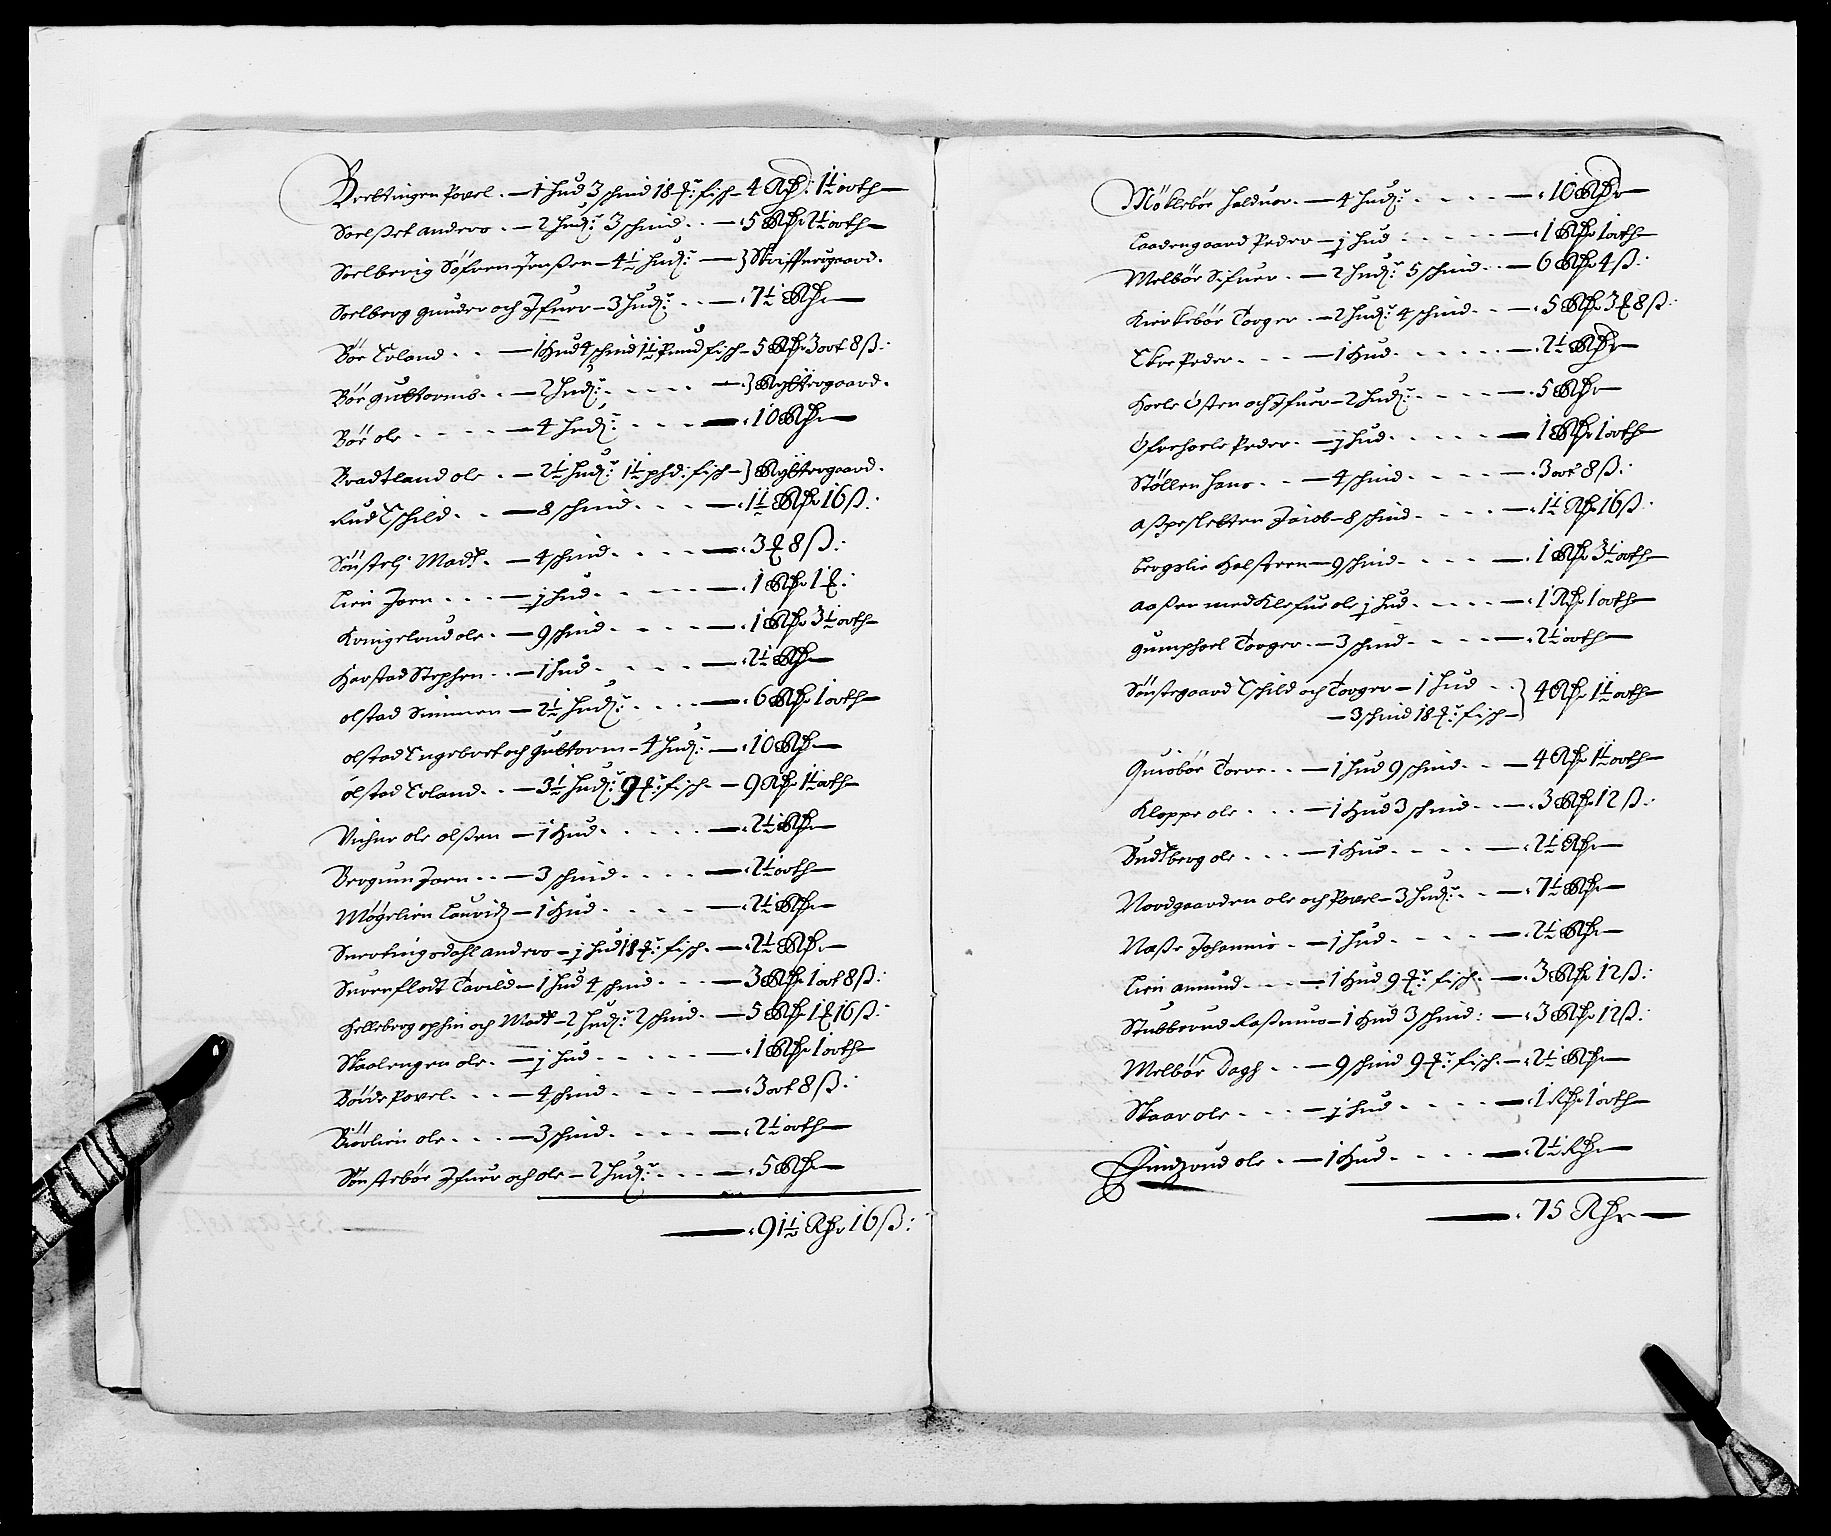 Brettingen Povel. — 1 hud 3 schind 18 ℔: fisch — 4 Rdr: 1½ orth —
Soelset anders. — 2 hud: 3 schind. — 5 Rdr 2½ orth —
Soelberig Söfren Jenssen — 4½ hud: — } Skriffuergaard.
Soelberg gunder och Ifuer — 3 hud: — 7½ Rdr —
Bör Erland. — 1 Hud 4 schind 1½ Pund fisch — 5 Rdr 3 ort 8 ß:
Bör guttormb. — 2 hud: — } Rÿttergaard.
Bör ole — 4 hud: — 10 Rdr —
Bradtland ole. — 2½ hud: 1½ phd: fisch — } Rÿttergaard.
Rud Eschild. — 8 schind. — 1½ Rdr 16 ß:
Sönstelj Madz. — 4 schind. — 3 ℔ 8 ß:
Lien Joen — j hud. — 1 Rdr 1 ℔:
Kringelrud ole. — 9 schind. — 1 Rdr 3½ orth —
Harstad Stephen. — 1 hud. — 2½ Rdr —
olstad Simmen — 2½ hud: — 6 Rdr 1 orth —
olstad Engebret och guttorm — 4 hud: — 10 Rdr —
olstad Erland. — 3½ hud: 9 ℔: fisch. — 9 Rdr 1½ orth —
Vichne ole olssen — 1 Hud. — 2½ Rdr —
Bergum Joen. — 3 schind. — 2½ orth —
Mögelien Lauridz — 1 Hud — 2½ Rdr —
Snertingsdahl anders — j hud 18 ℔: fisch. — 2½ Rdr —
Surenflodt Tarild — 1 hud 4 schind — 3 Rdr 1 ort 8 ß:
Helleberg ophin och Madz — 2 hud: 2 schind. — 5 Rdr 1 ℔ 16 ß:
Skaalengen ole. — j hud — 1 Rdr 1 orth —
Böide Povel. — 4 schind. — 3 ort 8 ß:
Biörlien ole. — 3 schind. — 2½ orth —
Sönstebör Ifuer och ole — 2 hud: — 5 Rdr —
— 91½ Rdr 16 ß:
Möklebör Halduor. — 4 hud: — 10 Rdr —
Laadengaard Peder — j hud — 1 Rdr 1 orth —
Melbör Sifuer. — 2 hud: 5 schind. — 6 Rdr 4 ß:
Kirkebör Torger. — 2 hud: 4 schind. — 5 Rdr 3 ℔ 8 ß:
Ekre Peder. — 1 Hud. — 2½ Rdr —
Hoele Östen och Ifuer — 2 hud: — 5 Rdr —
Öfrehoele Peder. — j hud. — 1 Rdr 1 orth —
Stöllen Hans. — 4 schind. — 3 ort 8 ß:
Aspesletten Jacob — 8 schind. — 1½ Rdr 16 ß:
Bergslie Holsteen — 9 schind. — 1 Rdr 3½ orth —
Aassen med Klefue ole j hud. — 1 Rdr 1 orth —
gumphoel Torger. — 3 schind. — 2½ orth —
Sönstegaard Eschild och Torger — 1 hud
— 3 schind 18 ℔: fisch — } 4 Rdr 1½ orth —
Quisbör Tore. — 1 hud 9 schind. — 4 Rdr 1½ orth —
Kloppe ole — 1 Hud 3 schind. — 3 Rdr 12 ß:
Budtberg ole. — 1 Hud. — 2½ Rdr —
Nordgaarden ole och Povel — 3 hud: — 7½ Rdr —
Næsse Johannis. — j hud. — 2½ Rdr —
Lien amund. — 1 Hud 9 ℔: fisch. — 3 Rdr 12 ß:
Stubberud Rassmus — 1 Hud 3 schind: — 3 Rdr 12 ß:
Melbör Dagh. — 9 schind 9 ℔: fisch. — 2½ Rdr —
Skaar ole. — j hud. — 1 Rdr 1 orth —
ole. — 1 Hud. — 2½ Rdr —
— 75 Rdr —